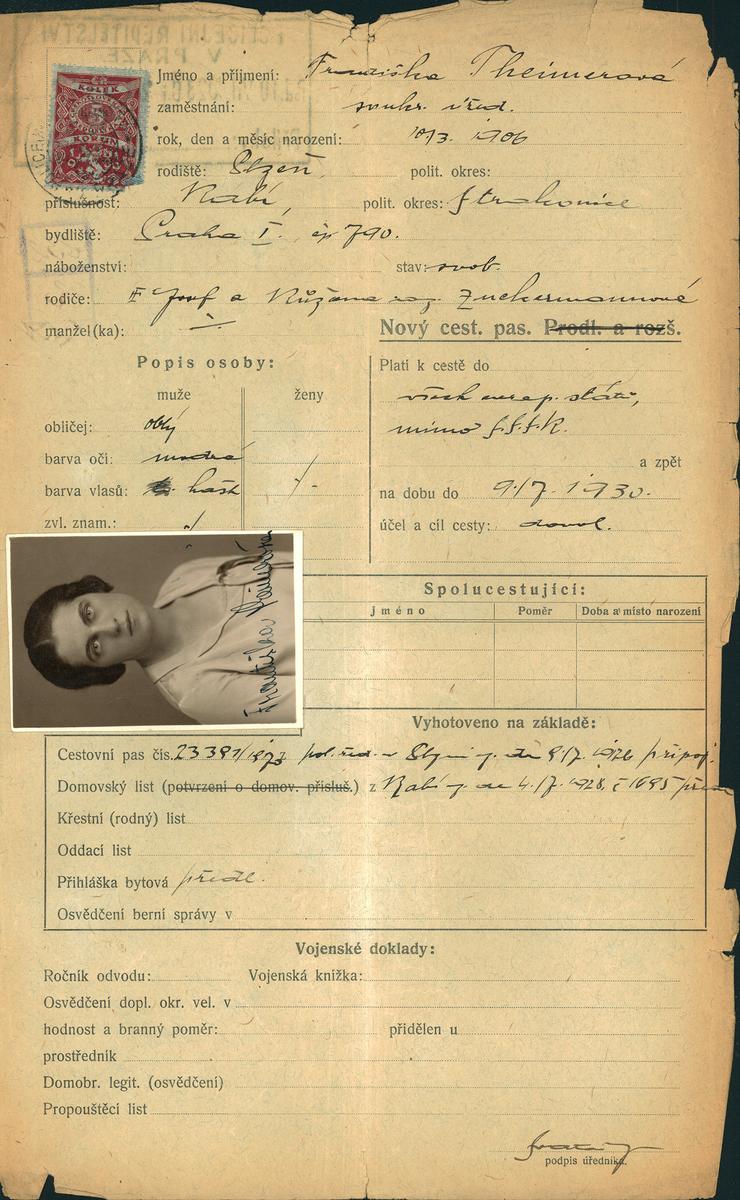 KOLEK
5
KORUN
Jméno a příjmení: Františka Theimerová
zaměstnání: soukr. úřed.
rok, den a měsíc narození: 10/3. 1906
rodiště: Plzeň, polit. okres:
příslušnost: Rabí, polit. okres: Strakonice
bydliště: Praha I. čp 790.
náboženství: stav: svob.
rodiče: Josef a Růžena roz. Zuckermannové
manžel(ka): ./.
Nový cest. pas. Prodl. a rozš.
Popis osoby:
Platí k cestě do
muže ženy
všech evrop. států,
obličej: oblý
mimo S.S.S.R.
barva očí: modré
a zpět
barva vlasů: kašt ./.
na dobu do 9./7. 1930.
zvl. znam.: ./.
účel a cíl cesty: dovol.
Františka
Spolucestující:
jméno Poměr Doba a místo narození
Vyhotoveno na základě:
Cestovní pas čís. pol. řed. v Plzni z. de 9./7. 1926 připoj.
Domovský list (potvrzení o domov. přísluš.) z Rabí z. de 4./7. 1928, č 1695
Křestní (rodný) list
Oddací list
Přihláška bytová předl.
Osvědčení berní správy v
Vojenské doklady:
Ročník odvodu: Vojenská knížka:
Osvědčení dopl. okr. vel. v
hodnost a branný poměr: přidělen u
prostředník
Domobr. legit. (osvědčení)
Propouštěcí list
podpis úředníka.